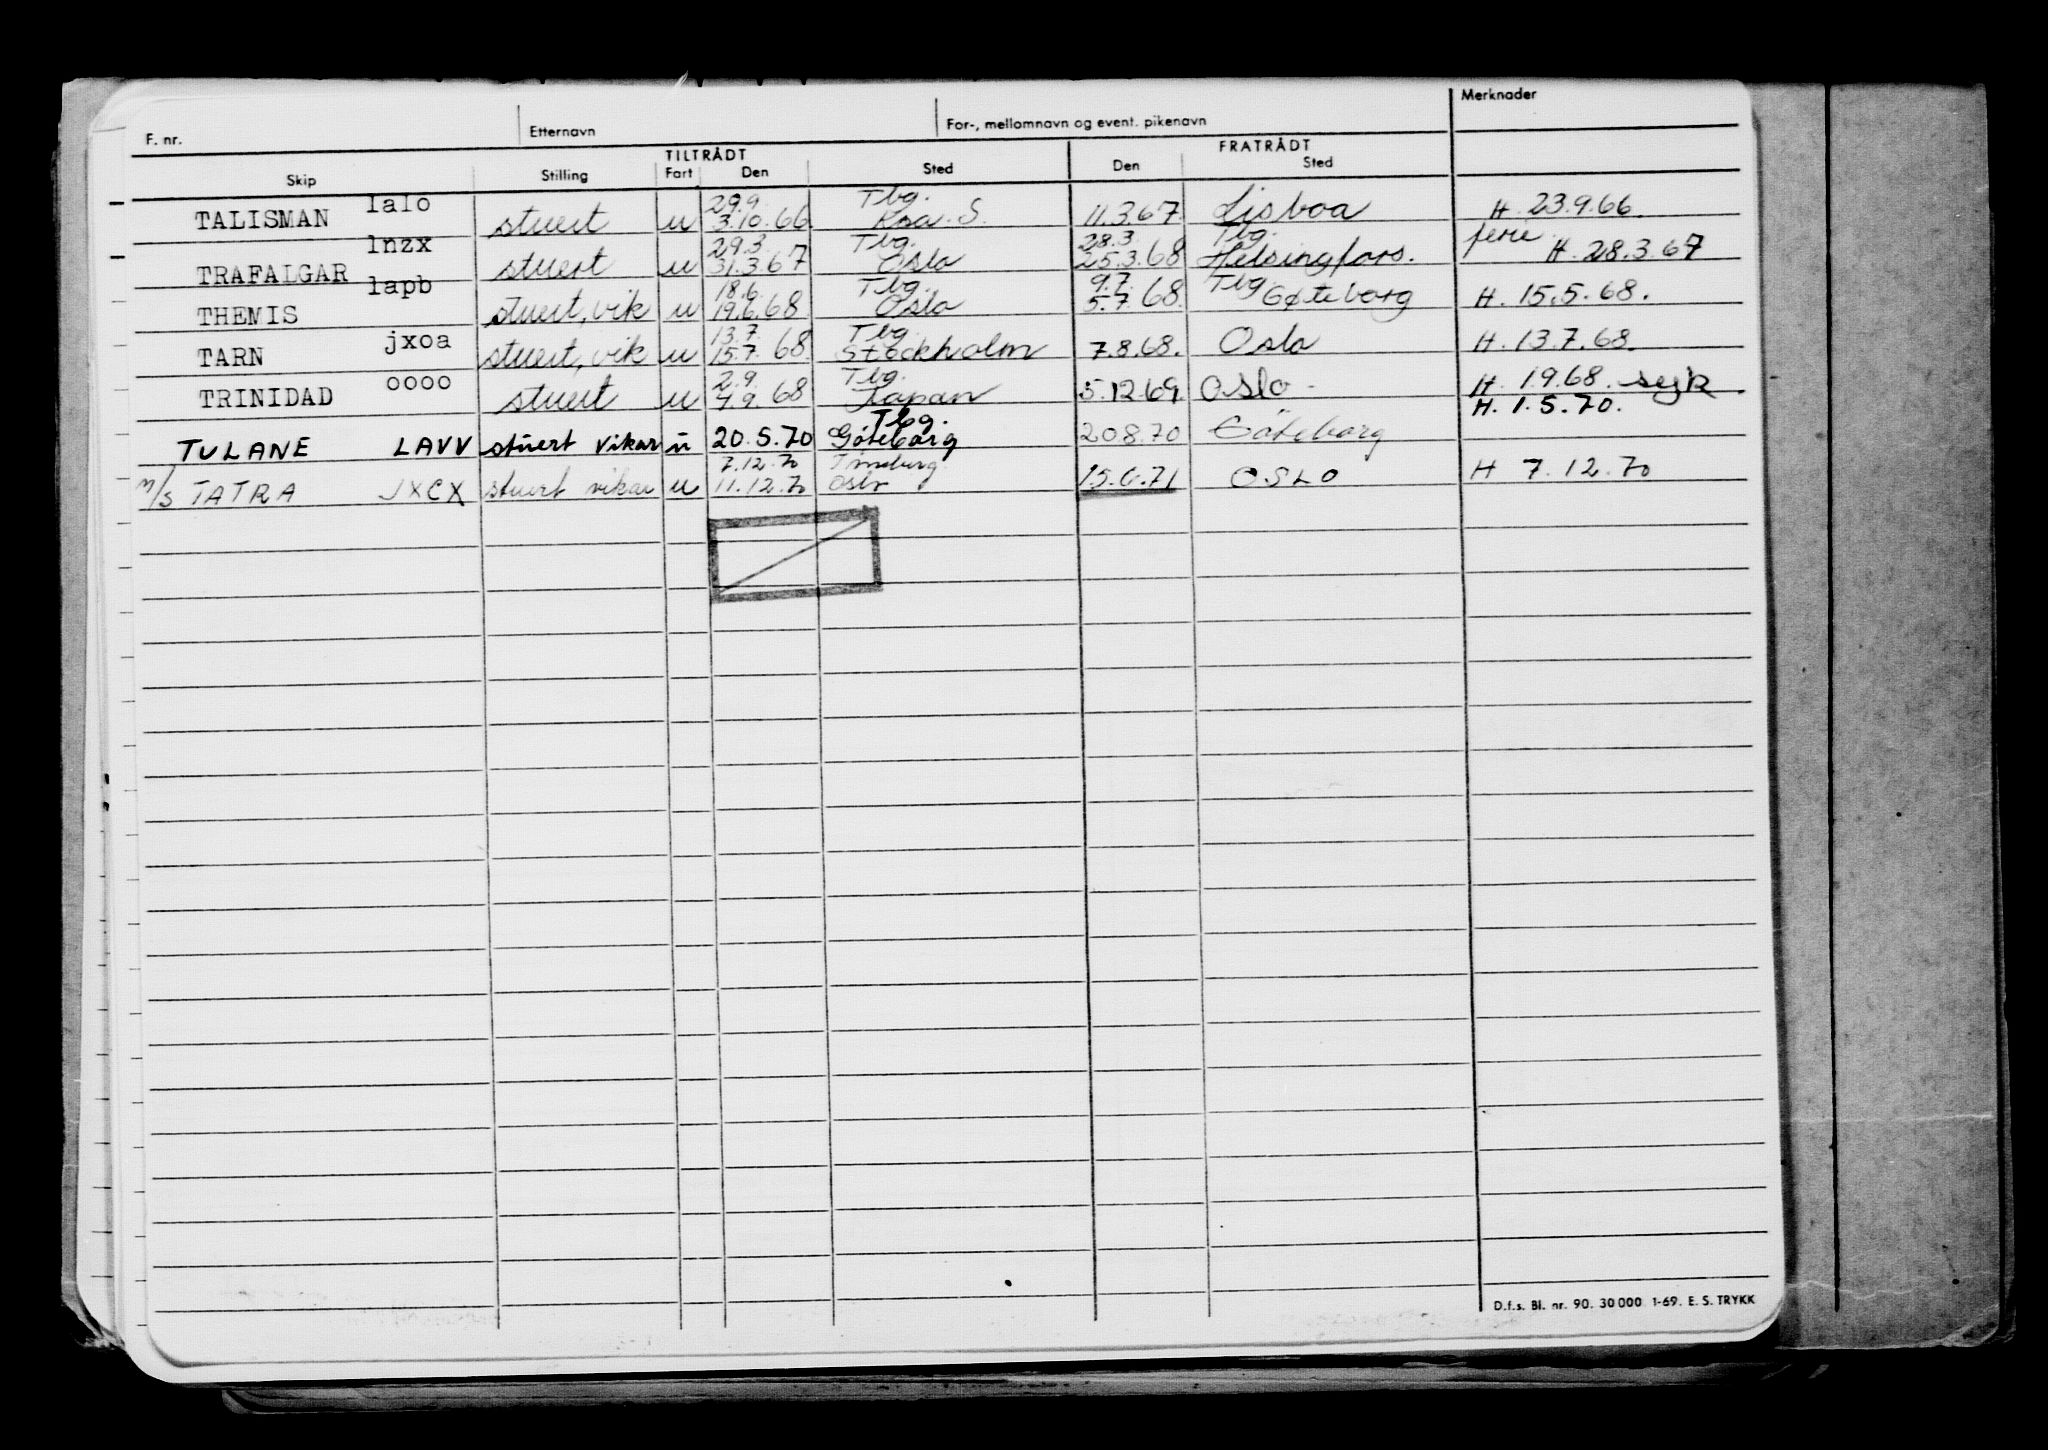 F. nr. Etternavn For-, mellomnavn og event. pikenavn Merknader
TILTRÅDT FRATRÅDT
Skip Stilling Fart Den Sted Den Sted
lalo 29.9. Tbg.
TALISMAN stuert u 3.10.66. Kra. S. 11.3.67. Lisboa H. 23.9.66.
lnzx 29.3. Tbg. 28.3. Tbg. ferie
TRAFALGAR stuert u 31.3.67 Oslo 25.3.68 Helsingfors. H. 28.3.67
lapb 18.6. Tbg. 9.7. Tbg
THEMIS stuert, vik u 19.6.68 Oslo 5.7.68. Gøteborg H. 15.5.68.
jxoa 13.7. Tbg.
TARN stuert, vik u 15.7.68. Stockholm 7.8.68. Oslo H. 13.7.68.
oooo 2.9. Tbg.
TRINIDAD stuert u 4.9.68 Japan 5.12.69. Oslo. H. 1.9.68. syk
Tbg. H. 1.5.70.
TULANE LAVV stuert vikar u 20.5.70 Göteborg 20.8.70 Göteborg
7.12.70 Tønsberg
M/S TATRA JXCX stuert vikar u 11.12.70 Oslo 15.6.71 OSLO H 7.12.70
D.f.s. Bl. nr. 90. 30 000 1-69. E. S. TRYKK